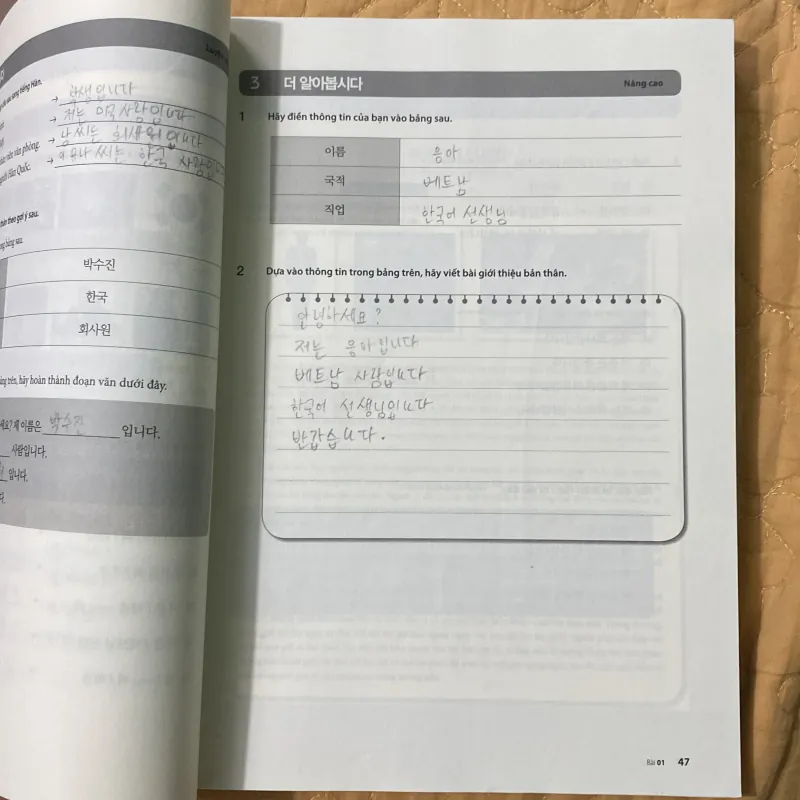 Luyện
sau sang tiếng Hàn.
→ 학생입니다
→ 저는 미국 사람입니다
nhân viên văn phòng.
→ 낭 씨는 회사원입니다
người Hàn Quốc.
씨는 한국 사람입니
thân theo gợi ý sau.
ong bảng sau.
박수진
한국
회사원
ảng trên, hãy hoàn thành đoạn văn dưới đây.
세요? 제 이름은 박수진 입니다.
사람입니다.
입니다.
다.
3 더 알아봅시다 Nâng cao
1 Hãy điền thông tin của bạn vào bảng sau.
이름 응아
국적 베트남
직업 한국어 선생님
2 Dựa vào thông tin trong bảng trên, hãy viết bài giới thiệu bản thân.
안녕하세요?
저는 응아입니다
베트남 사람입니다
한국어 선생님입니다
반갑습니다.
Bài 01 47